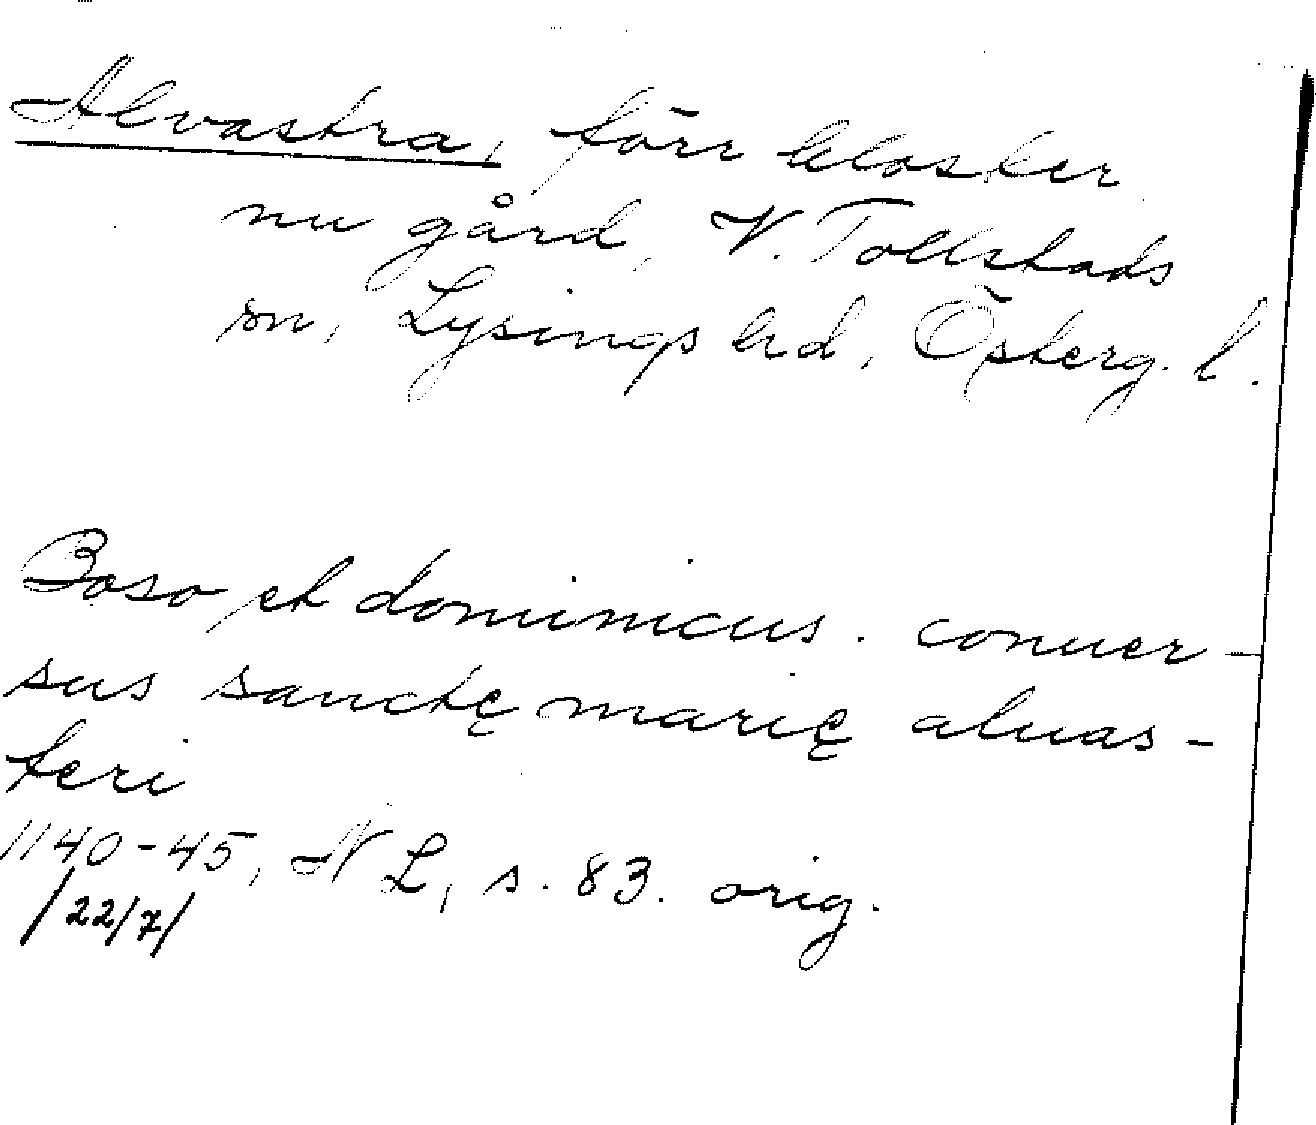 Alvastra, förr kloster
nu gård, V. Tollstads
sn, Lysings hd, Österg. l.
Boso et dominicus. conuer-
sus sanctę marię aluas-
teri
1140-45, N L, s. 83. orig.
/22/7/